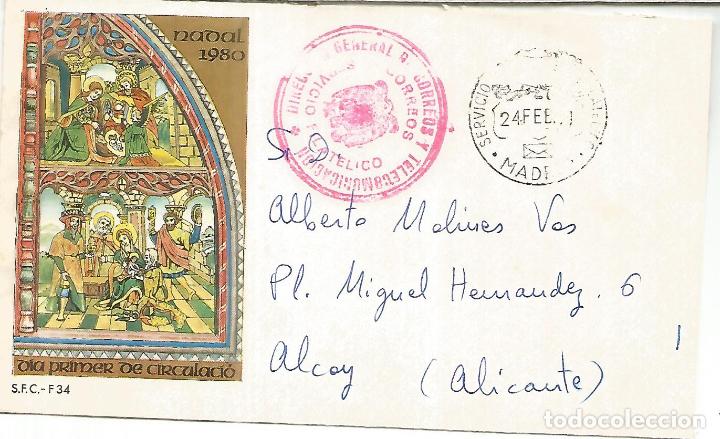 nadal
1980
DIRECCION GENERAL DE CORREOS Y TELECOMUNICACION
CORREOS
FILATELICO
SERVICIO
24 FEB.
MADR
Sr D.
Alberto Molines Vos
Pl. Miguel Hernandez. 6
Alcoy (Alicante)
dia primer de circulació
S.F.C.-F34
todocoleccion
todocoleccion.net